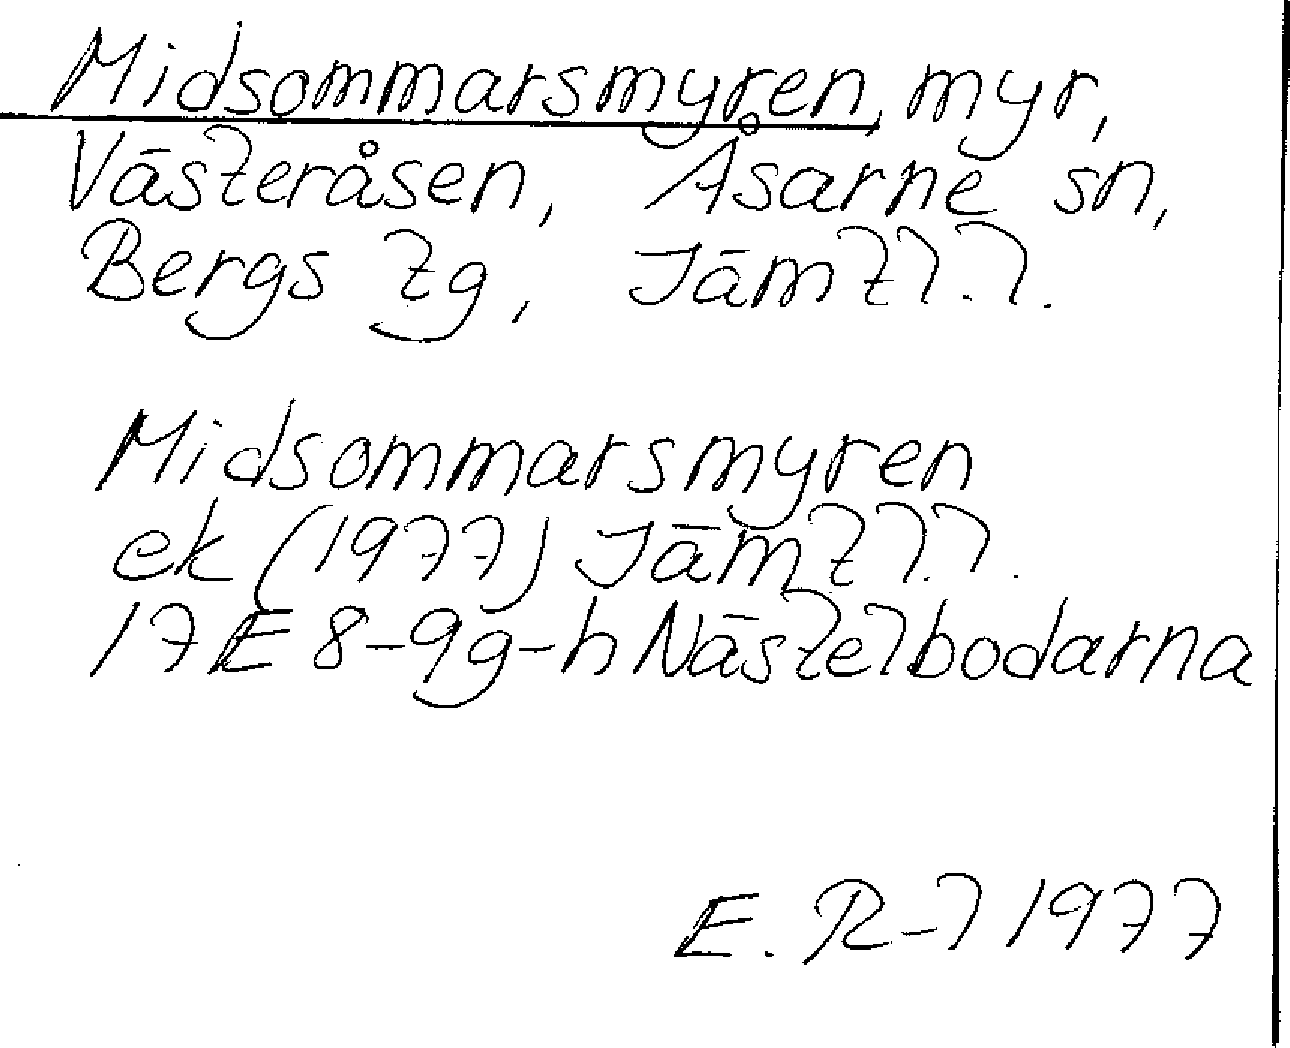 Midsommarsmyren, myr,
Västeråsen, Åsarne sn,
Bergs tg, Jämtl.l.
Midsommarsmyren
ek (1977) Jämtl.l.
17E 8-9g-h Nästelbodarna
E. R-l 1977